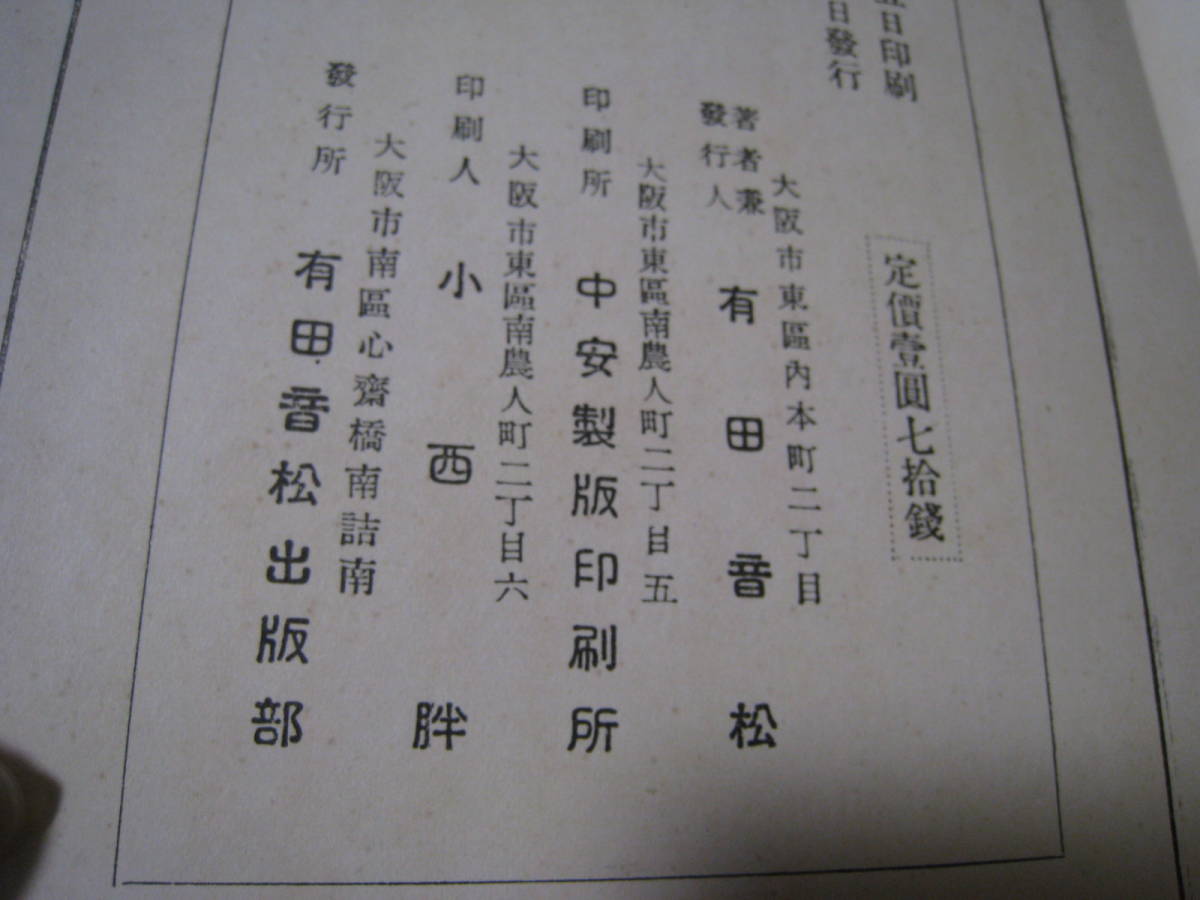 日印刷
日發行
定價壹圓七拾錢
大阪市東區內本町二丁目
著者兼
發行人
有田音松
大阪市東區南農人町二丁目五
印刷所 中安製版印刷所
大阪市東區南農人町二丁目六
印刷人 小西胖
大阪市南區心齋橋南詰南
發行所 有田音松出版部